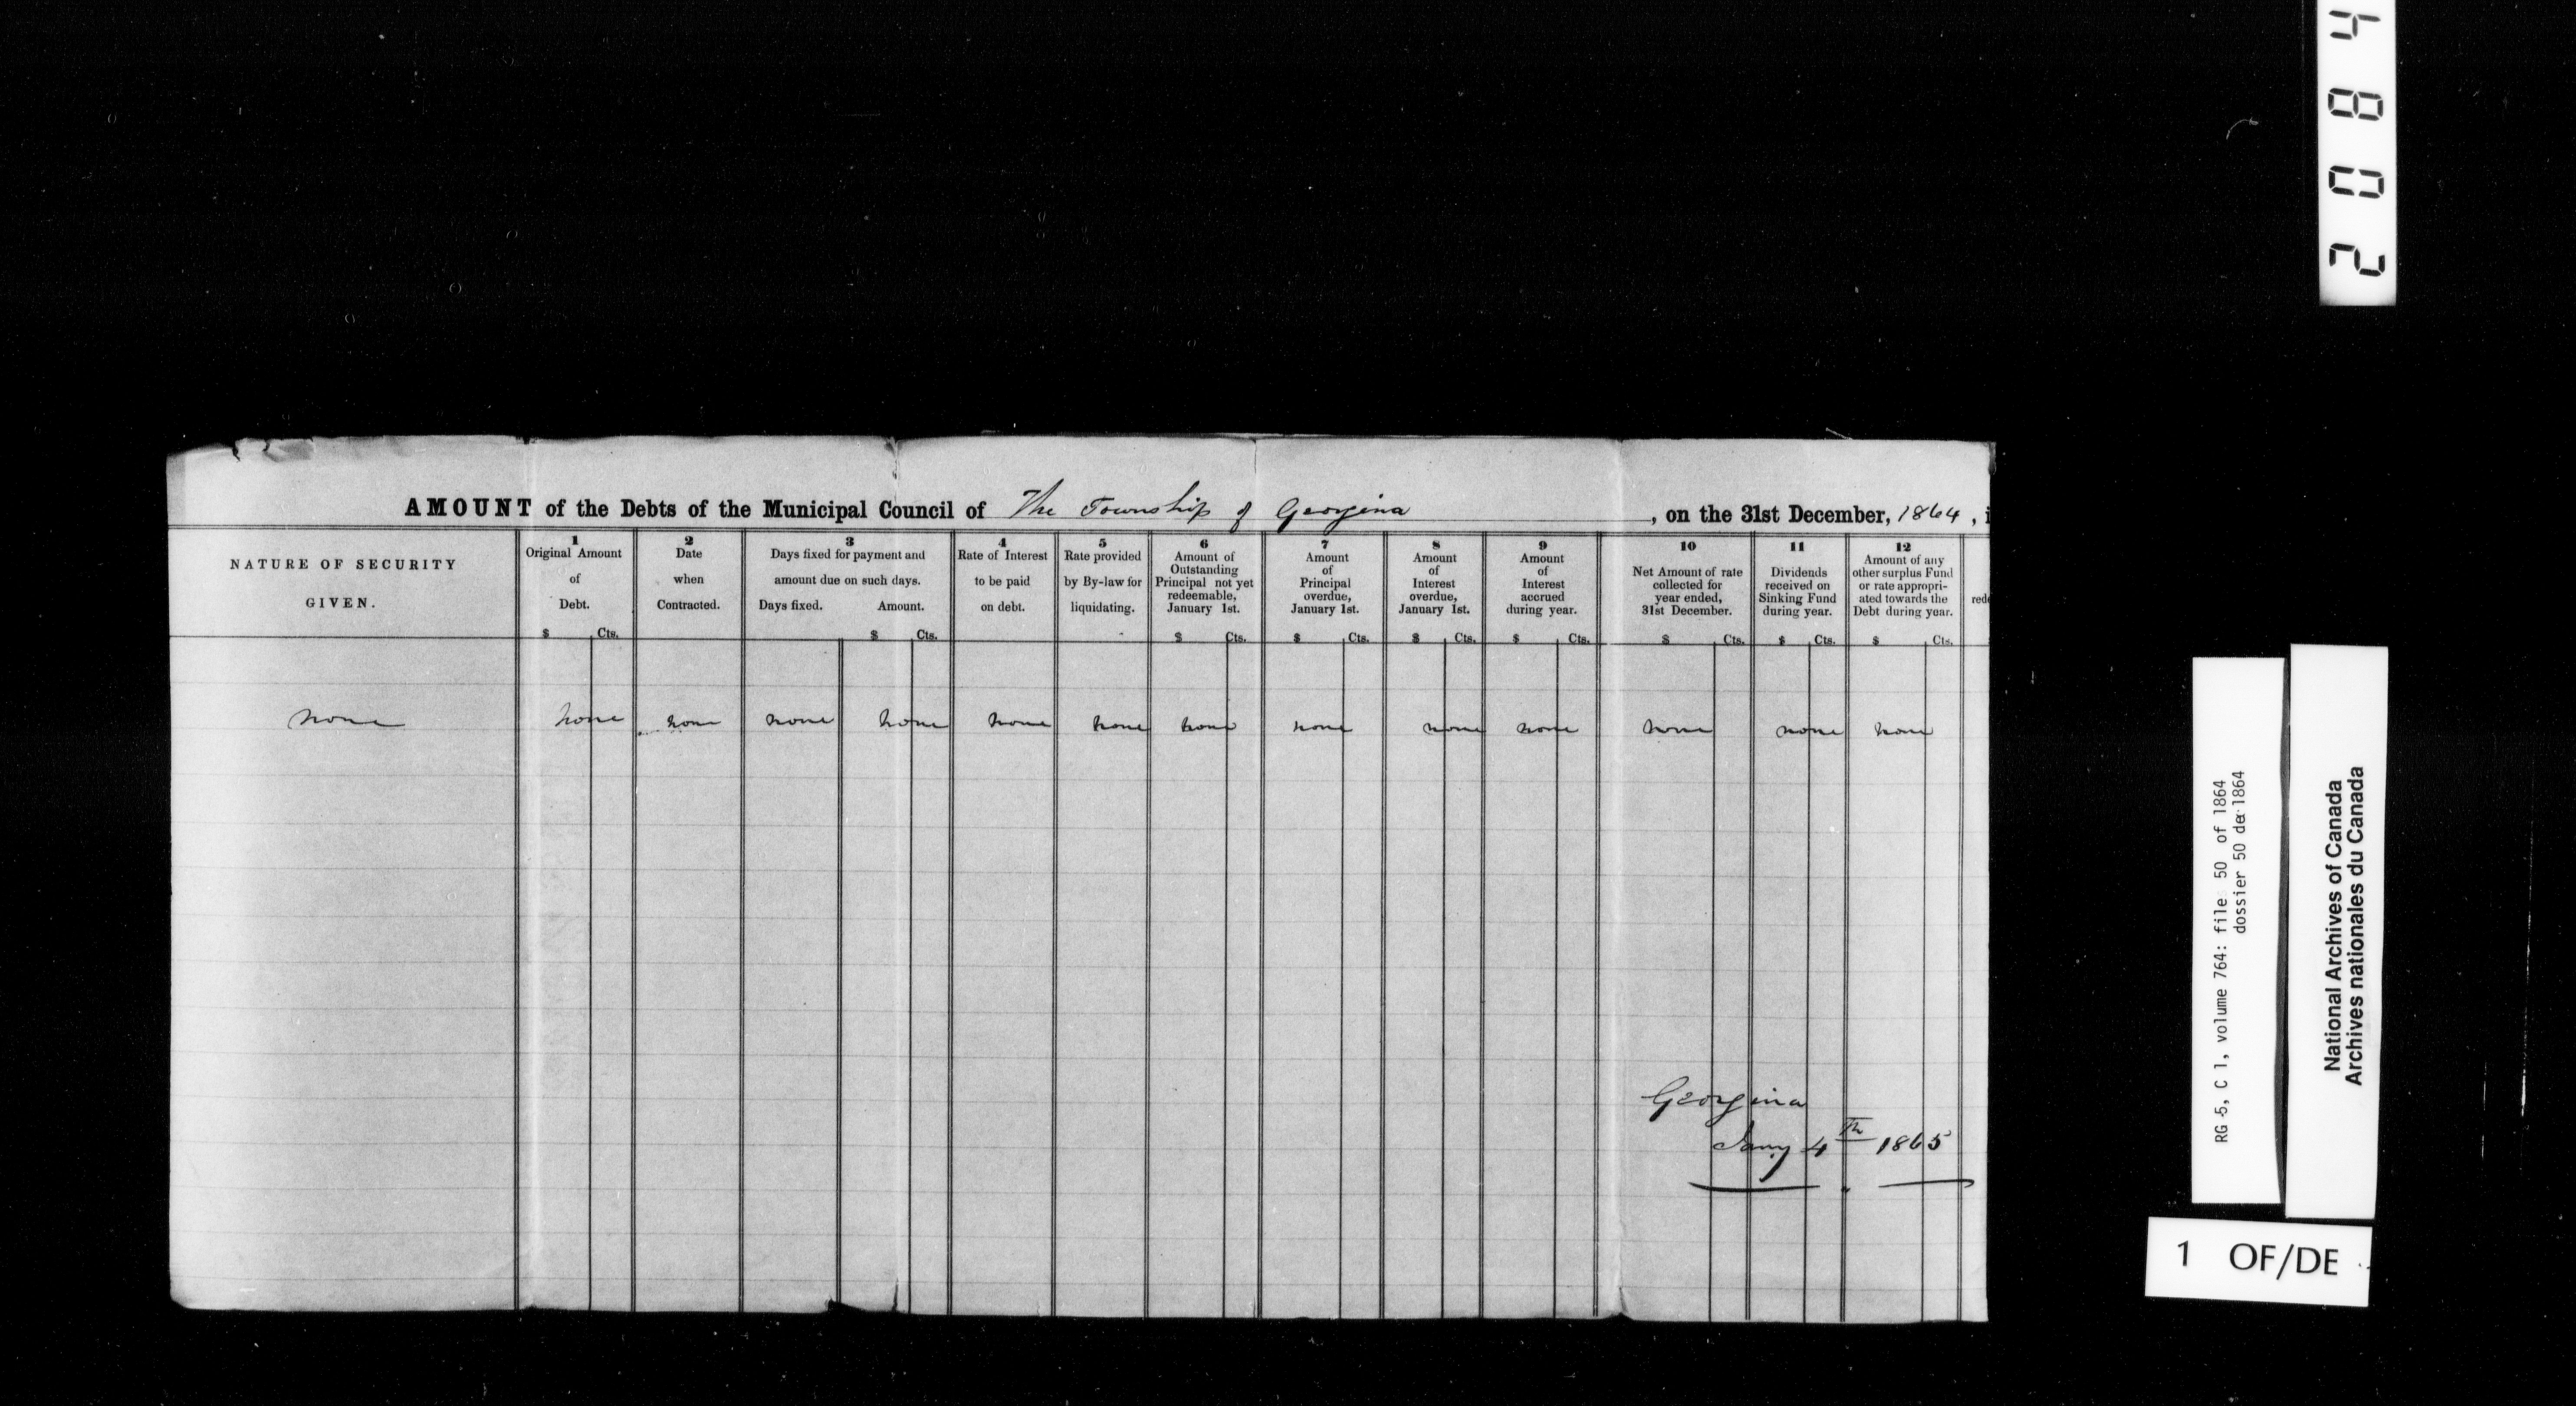 AMOUNT of the Debts of the Municipal Council of The Township of Georgina , on the 31st December, 1864 , i
NATURE OF SECURITY
GIVEN.
1
Original Amount
of
Debt.
$ Cts.
2
Date
when
Contracted.
3
Days fixed for payment and
amount due on such days.
Days fixed. Amount.
$ Cts.
4
Rate of Interest
to be paid
on debt.
5
Rate provided
by By-law for
liquidating.
6
Amount of
Outstanding
Principal not yet
redeemable,
January 1st.
$ Cts.
7
Amount
of
Principal
overdue,
January 1st.
$ Cts.
8
Amount
of
Interest
overdue,
January 1st.
$ Cts.
9
Amount
of
Interest
accrued
during year.
$ Cts.
10
Net Amount of rate
collected for
year ended,
31st December.
$ Cts.
11
Dividends
received on
Sinking Fund
during year.
$ Cts.
12
Amount of any
other surplus Fund
or rate appropri-
ated towards the
Debt during year.
$ Cts.
rede
none none none none none none none none none none none none none none
Georgina
Jany 4th 1865
2084
RG 5, C 1, volume 764: file 50 of 1864
dossier 50 de 1864
National Archives of Canada
Archives nationales du Canada
1 OF/DE